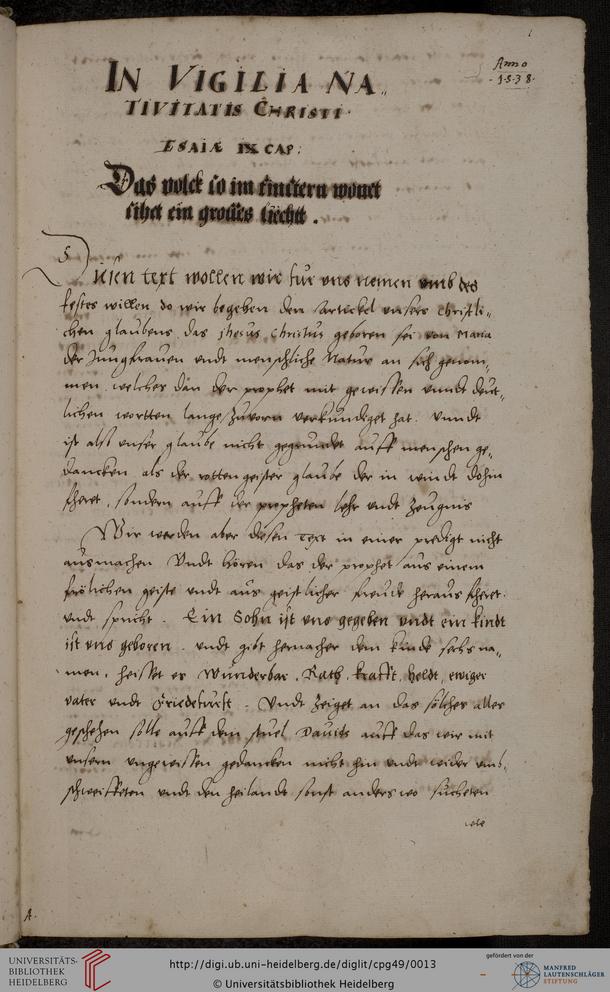 1
Anno
1538.
IN VIGILIA NA„
TIVITATIS CHRISTI.
ESAIÆ IX CAP:
Das volck so im finstern wonet
sihet ein grosses liecht .
Diesen text wollen wir fur uns nemen umb des
festes willen do wir begehen den artickel unsers christli„
chen glaubens das jhesus Christus geboren sei von Maria
der Jungfrauen undt menschliche Natur an sich genom„
men welches dan der prophet mit gewissen unndt deut„
lichen wortten lange zuvorn verkundiget hat. unndt
ist also unser glaube nicht gegrundet auff menschen ge„
dancken als der rottengeister glaube der in windt dohin
fheret, sondern auff der propheten lehr undt zeugnis
Wir werden aber diesen Text in einer predigt nicht
ausmachen Undt hören das der prophet aus einem
frölichen geiste undt aus geistlicher freude heraus fheret.
undt spricht. Ein Sohn ist uns gegeben undt ein kindt
ist uns geboren. undt gibt hernacher dem kinde sechs na„
men, heisset er Wunderbar, Rath, krafft, heldt, ewiger
vater undt Friedefurst. Undt zeiget an das solches alles
geschehen solle auff dem stuel Davidts auff das wir mit
unsern ungewissen gedancken nicht hin undt wider umb„
schweiffeten undt den heilandt sonst anders wo sucheten
A.
UNIVERSITÄTS-
BIBLIOTHEK
HEIDELBERG
http://digi.ub.uni-heidelberg.de/diglit/cpg49/0013
© Universitätsbibliothek Heidelberg
gefördert von der
MANFRED
LAUTENSCHLÄGER
STIFTUNG